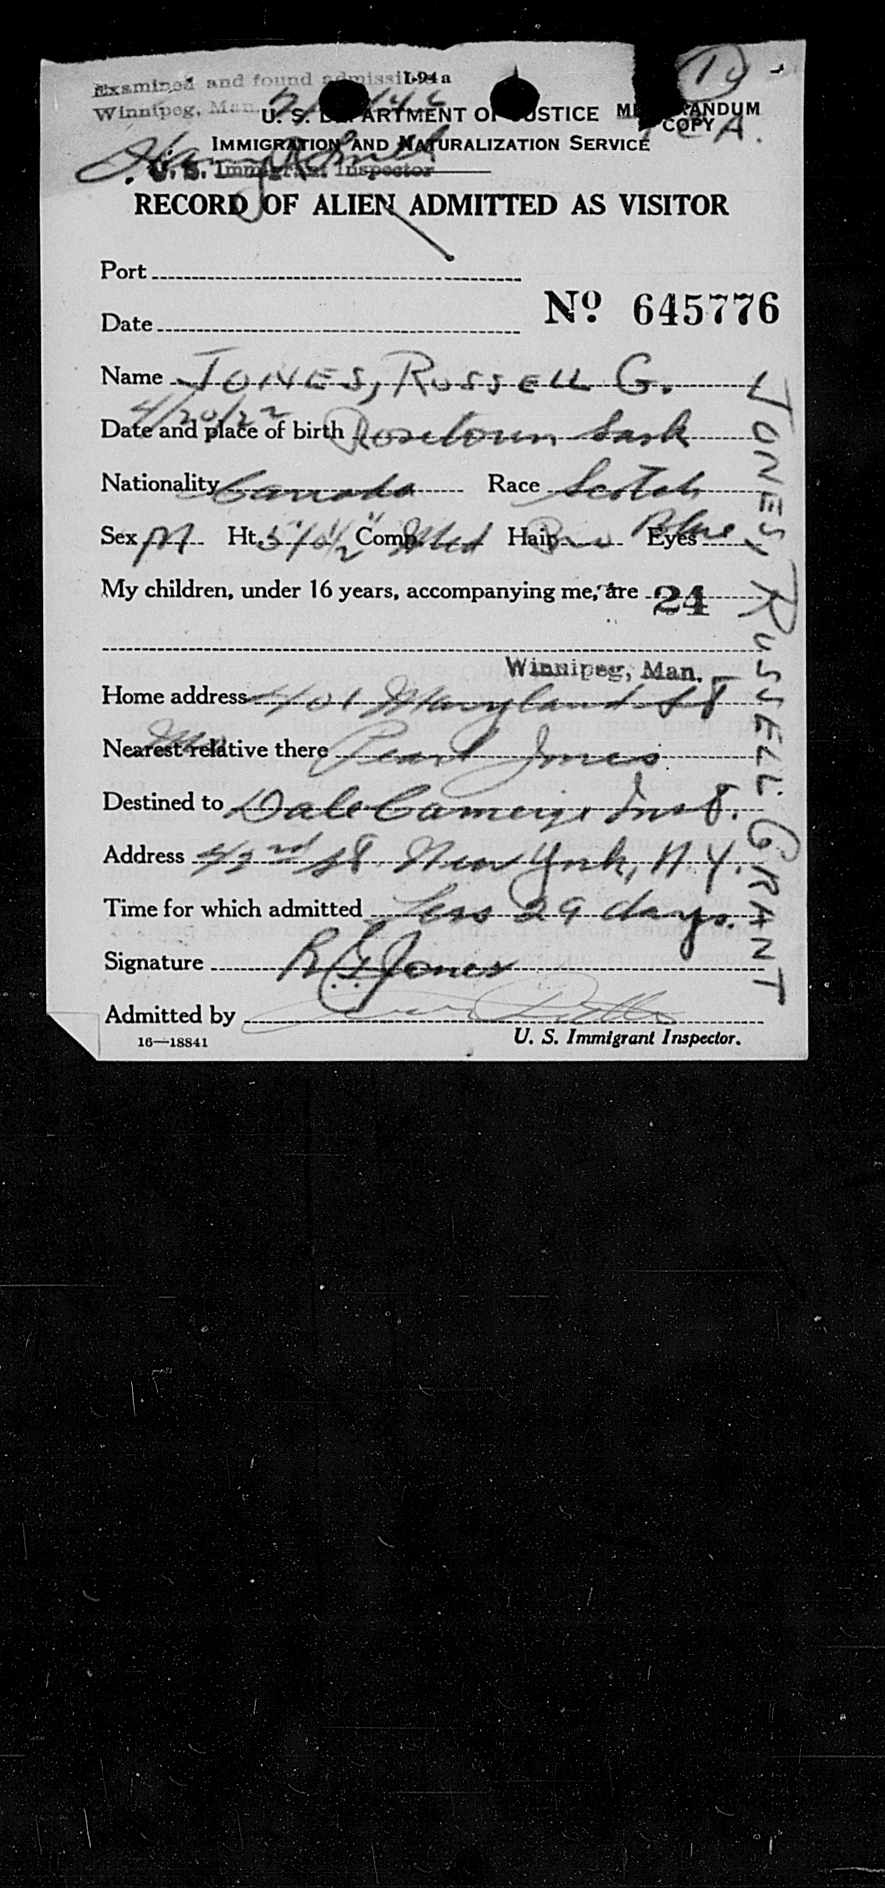 I-94a
Examined and found admissible
Winnipeg, Man.
U. S. DEPARTMENT OF JUSTICE MEMORANDUM
COPY
IMMIGRATION AND NATURALIZATION SERVICE
U. S. Immigrant Inspector
RECORD OF ALIEN ADMITTED AS VISITOR
Port
Nº 645776
Date
Name JONES, RUSSELL G.
4/20/22
Date and place of birth Rosetown Sask
Nationality Canada Race Scotch
Sex M Ht. 5'10½" Comp. Med Hair Bro Eyes Blue
My children, under 16 years, accompanying me, are 24
Winnipeg, Man.
Home address 401 Maryland St
Nearest relative there Mrs Pearl Jones
Destined to Dale Carnegie Inst.
Address 42nd St. New York, N.Y.
Time for which admitted Less 29 days.
Signature R.G. Jones
Admitted by
16—18841 U. S. Immigrant Inspector.
JONES, RUSSELL GRANT